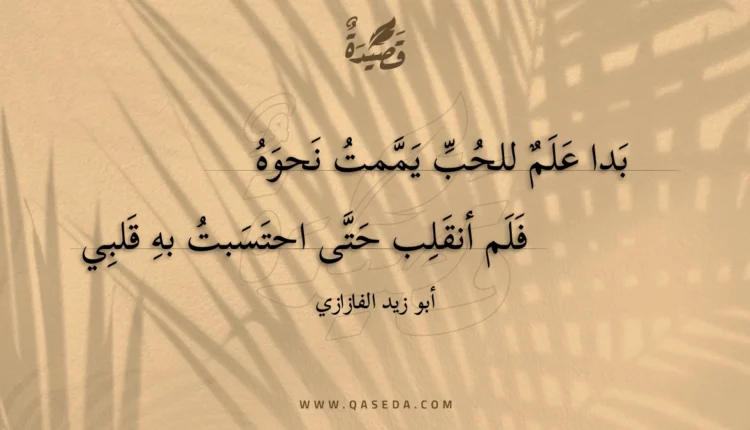 قَصِيْدَةٌ
بَدا عَلَمٌ للحُبِّ يَمَّمتُ نَحوَهُ
فَلَم أنقَلِب حَتَّى احتَسَبتُ بهِ قَلبِي
أبو زيد الفازازي
WWW.QASEDA.COM